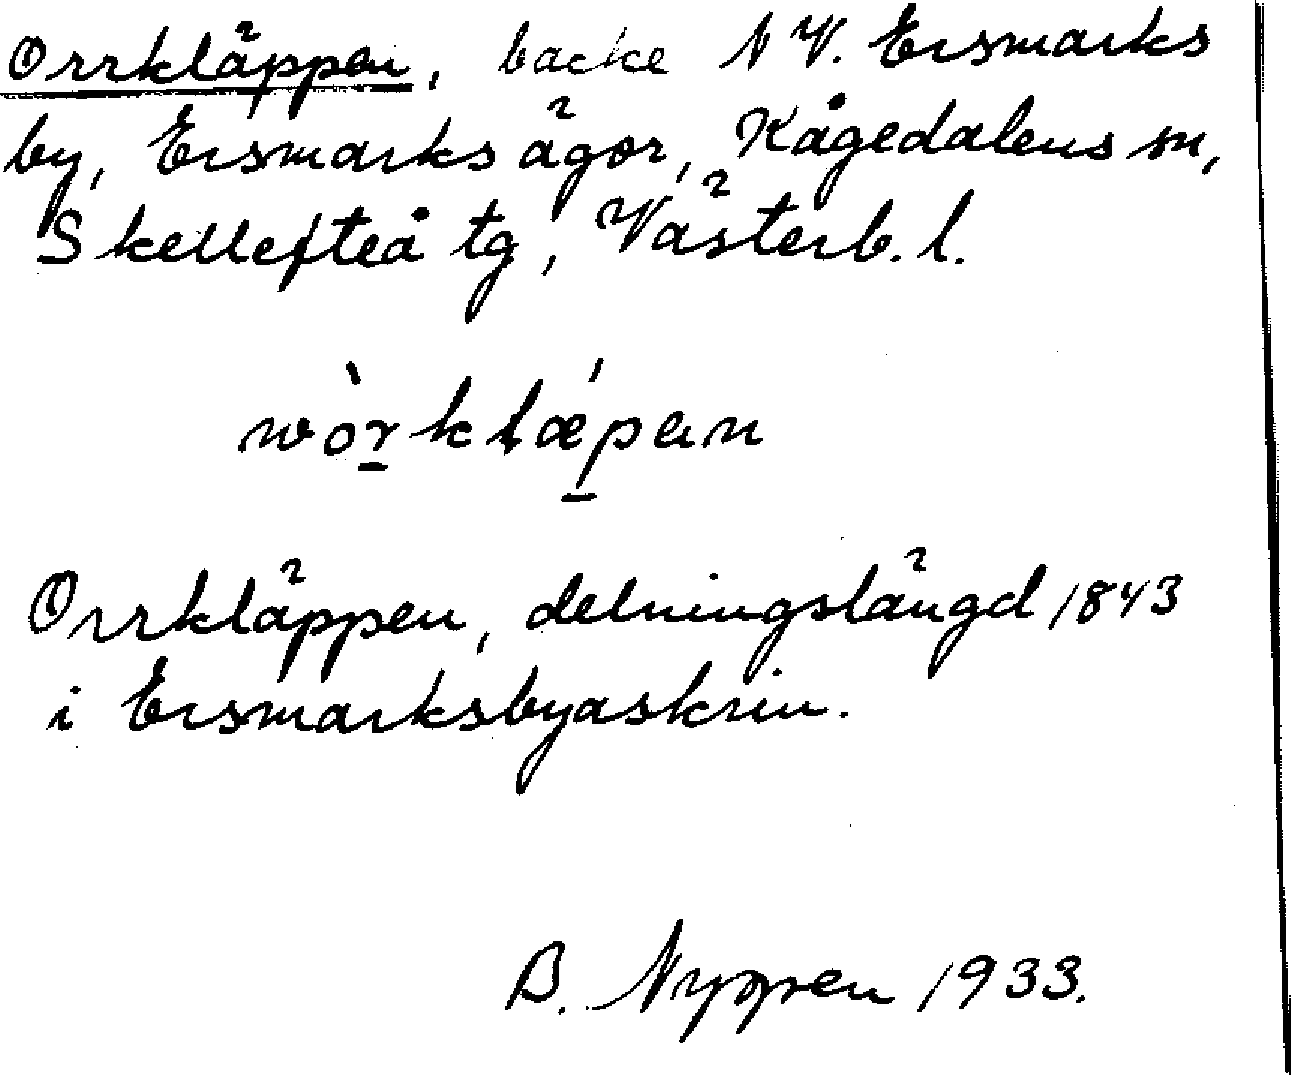 Orrkläppen, backe NV. Ersmarks
by, Ersmarks ägor, Kågedalens sn,
Skellefteå tg, Västerb. l.
wòr̲klǽp̲an
Orrkläppen, delningslängd 1843
i Ersmarksbyaskrin.
B. 1933.